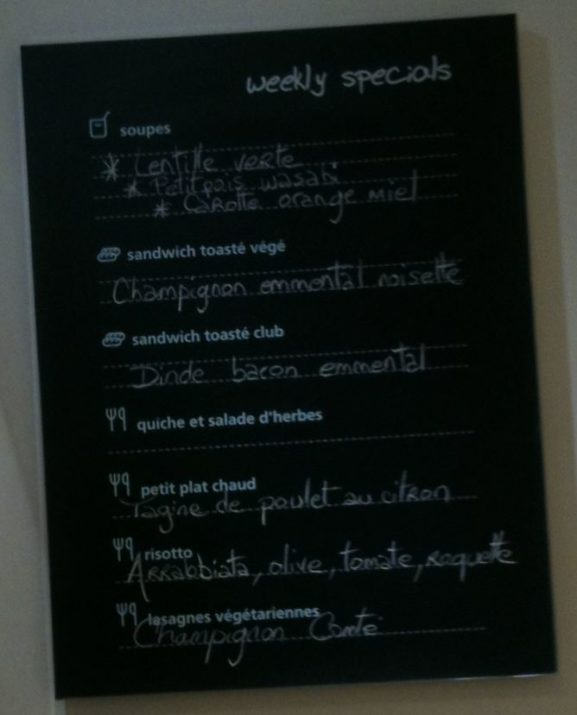 weekly specials
soupes
* Lentille verte
* Petit pois wasabi
* Carotte orange miel
sandwich toasté végé
Champignon emmental noisette
sandwich toasté club
Dinde bacon emmental
quiche et salade d'herbes
petit plat chaud
Tagine de poulet au citron
risotto
Arrabbiata, olive, tomate, roquette
lasagnes végétariennes
Champignon Comté